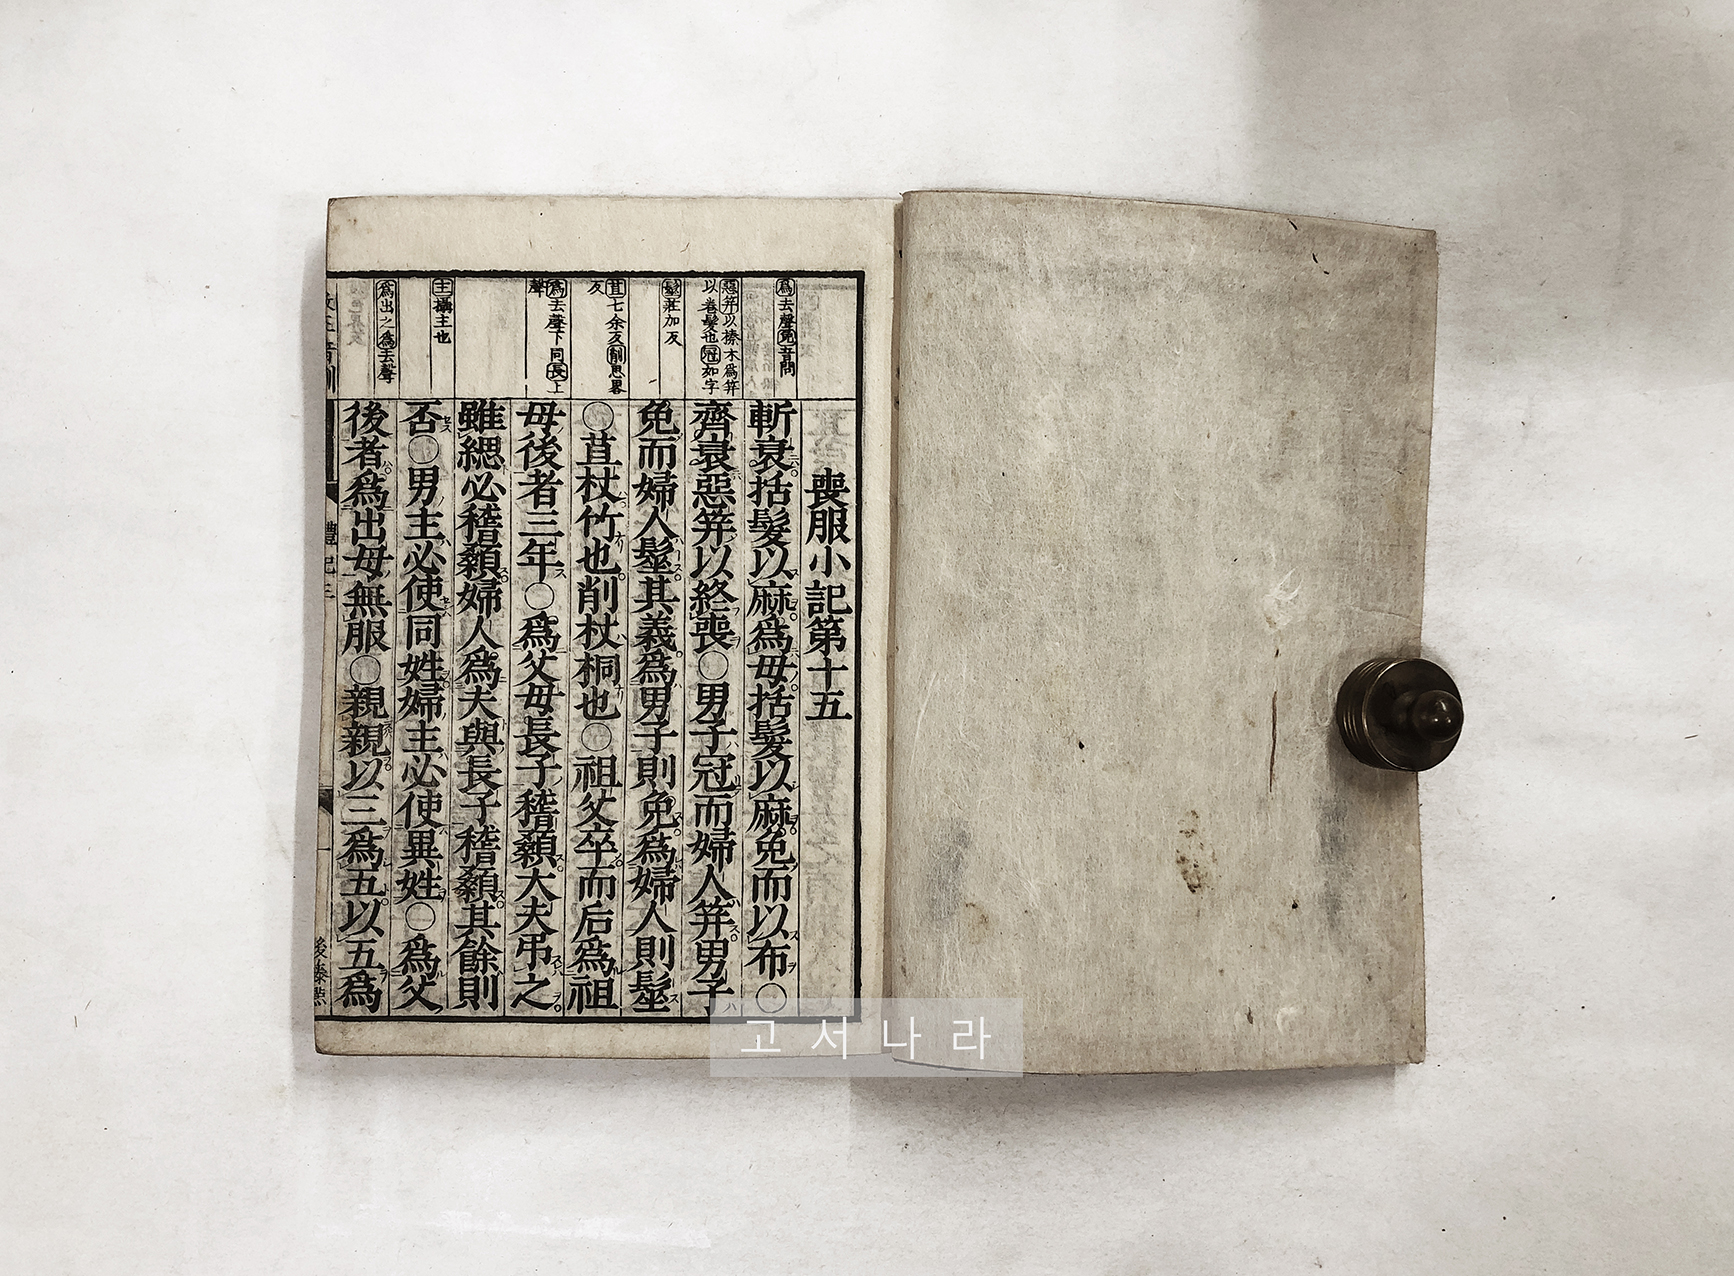 喪服小記第十五
斬衰括髮以麻爲母括髮以麻免而以布○
齊衰惡笄以終喪○男子冠而婦人笄男子
免而婦人髽其義爲男子則免爲婦人則髽
○苴杖竹也削杖桐也○祖父卒而后爲祖
母後者三年○爲父母長子稽顙大夫弔之
雖緦必稽顙婦人爲夫與長子稽顙其餘則
否○男主必使同姓婦主必使異姓○爲父
後者爲出母無服○親親以三爲五以五爲
爲去聲免音問
惡笄以榛木爲笄
以卷髮也冠如字
髽莊加反
苴七余反削思畧
反
爲去聲下同長上
聲
主攝主也
爲出之爲去聲
禮記三
後藤點
고서나라